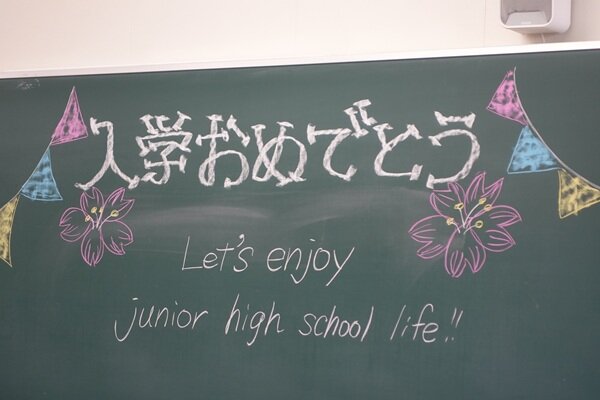 入学おめでとう
Let's enjoy
junior high school life!!